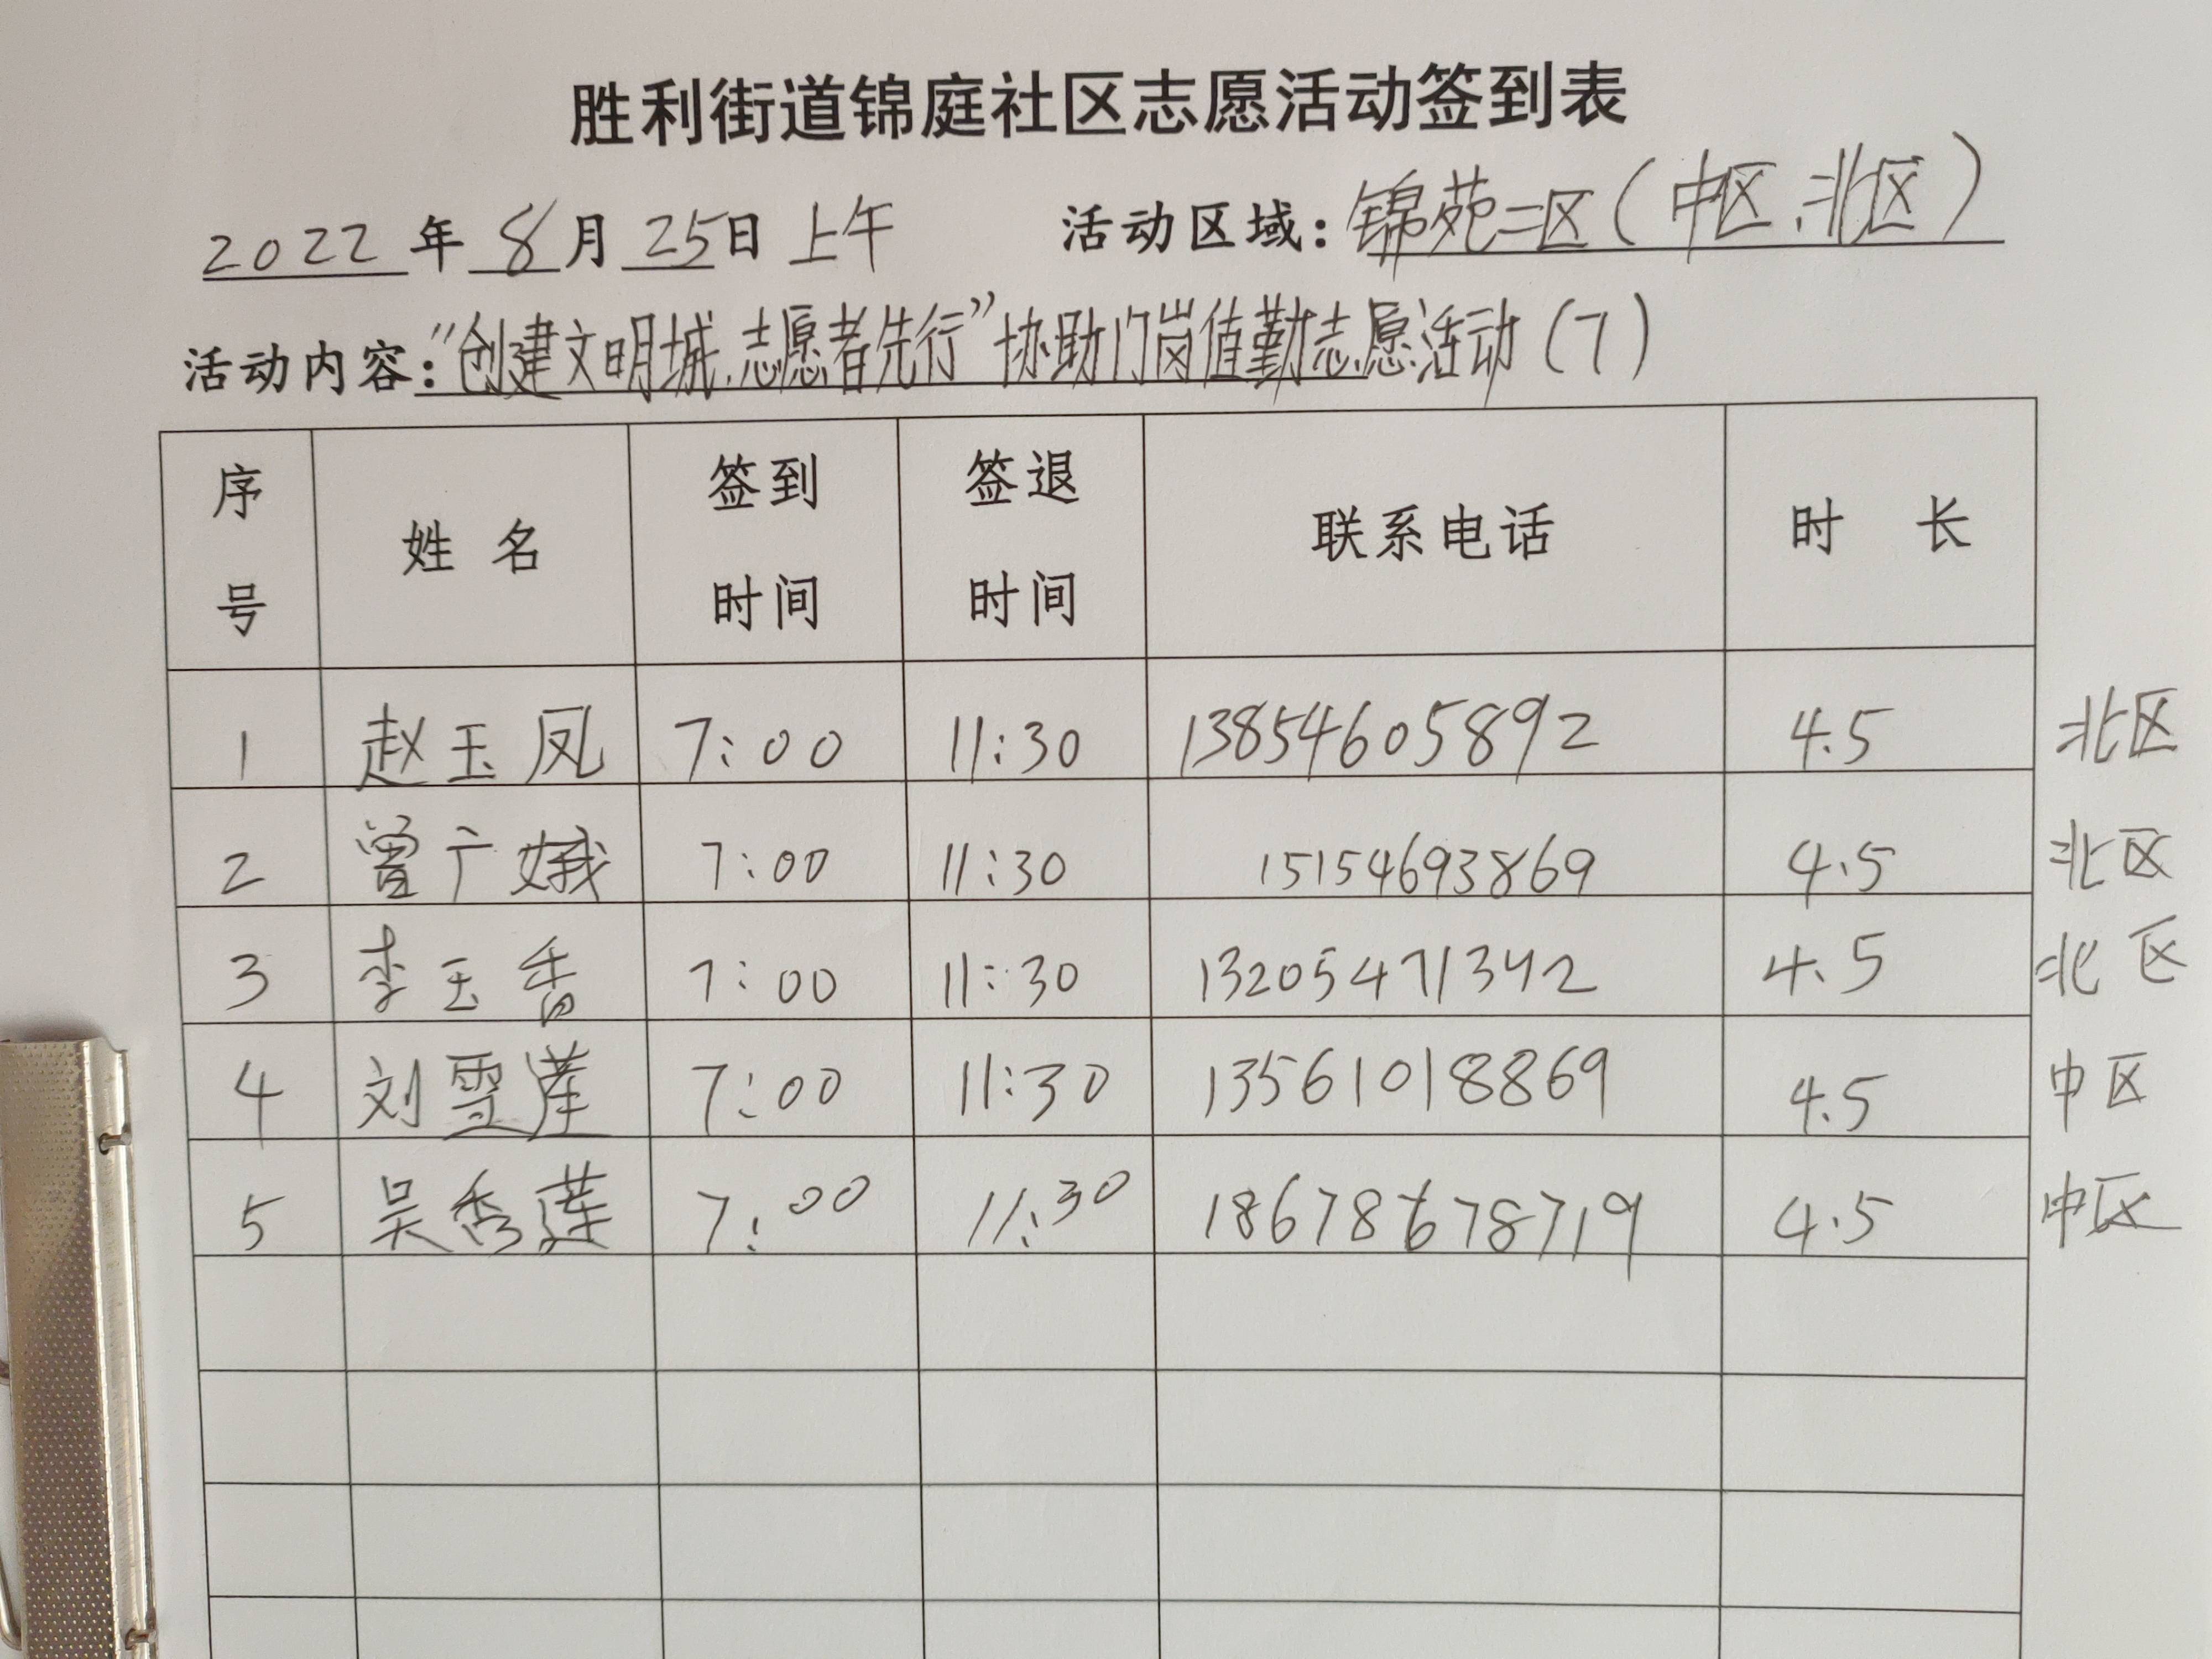 胜利街道锦庭社区志愿活动签到表
2022年8月25日上午 活动区域:锦苑二区(中区、北区)
活动内容:“创建文明城.志愿者先行”协助门岗值勤志愿活动(7)
序号 姓名 签到时间 签退时间 联系电话 时长
1 赵玉凤 7:00 11:30 13854605892 4.5 北区
2 曾广娥 7:00 11:30 15154693869 4.5 北区
3 李玉香 7:00 11:30 13205471342 4.5 北区
4 刘雪莲 7:00 11:30 13561018869 4.5 中区
5 吴秀莲 7:00 11:30 18678678719 4.5 中区